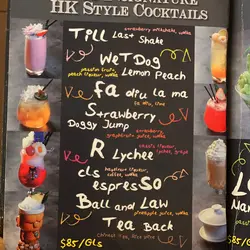 HK STYLE COCKTAILS
strawberry milkshake, vodka
TPLL Last Shake
WeT Dog
passion fruit,
peach liqueur, vodka
Lemon Peach
fa dpu la ma
la dou, lime
Strawberry
strawberry,
grapefruit juice, vodka
Doggy Jump
R Lychee
cls
hazelnut liqueur,
coffee, vodka
espresSO
Ball and Law
pineapple juice, vodka
Tea Back
$85/GLS
$85